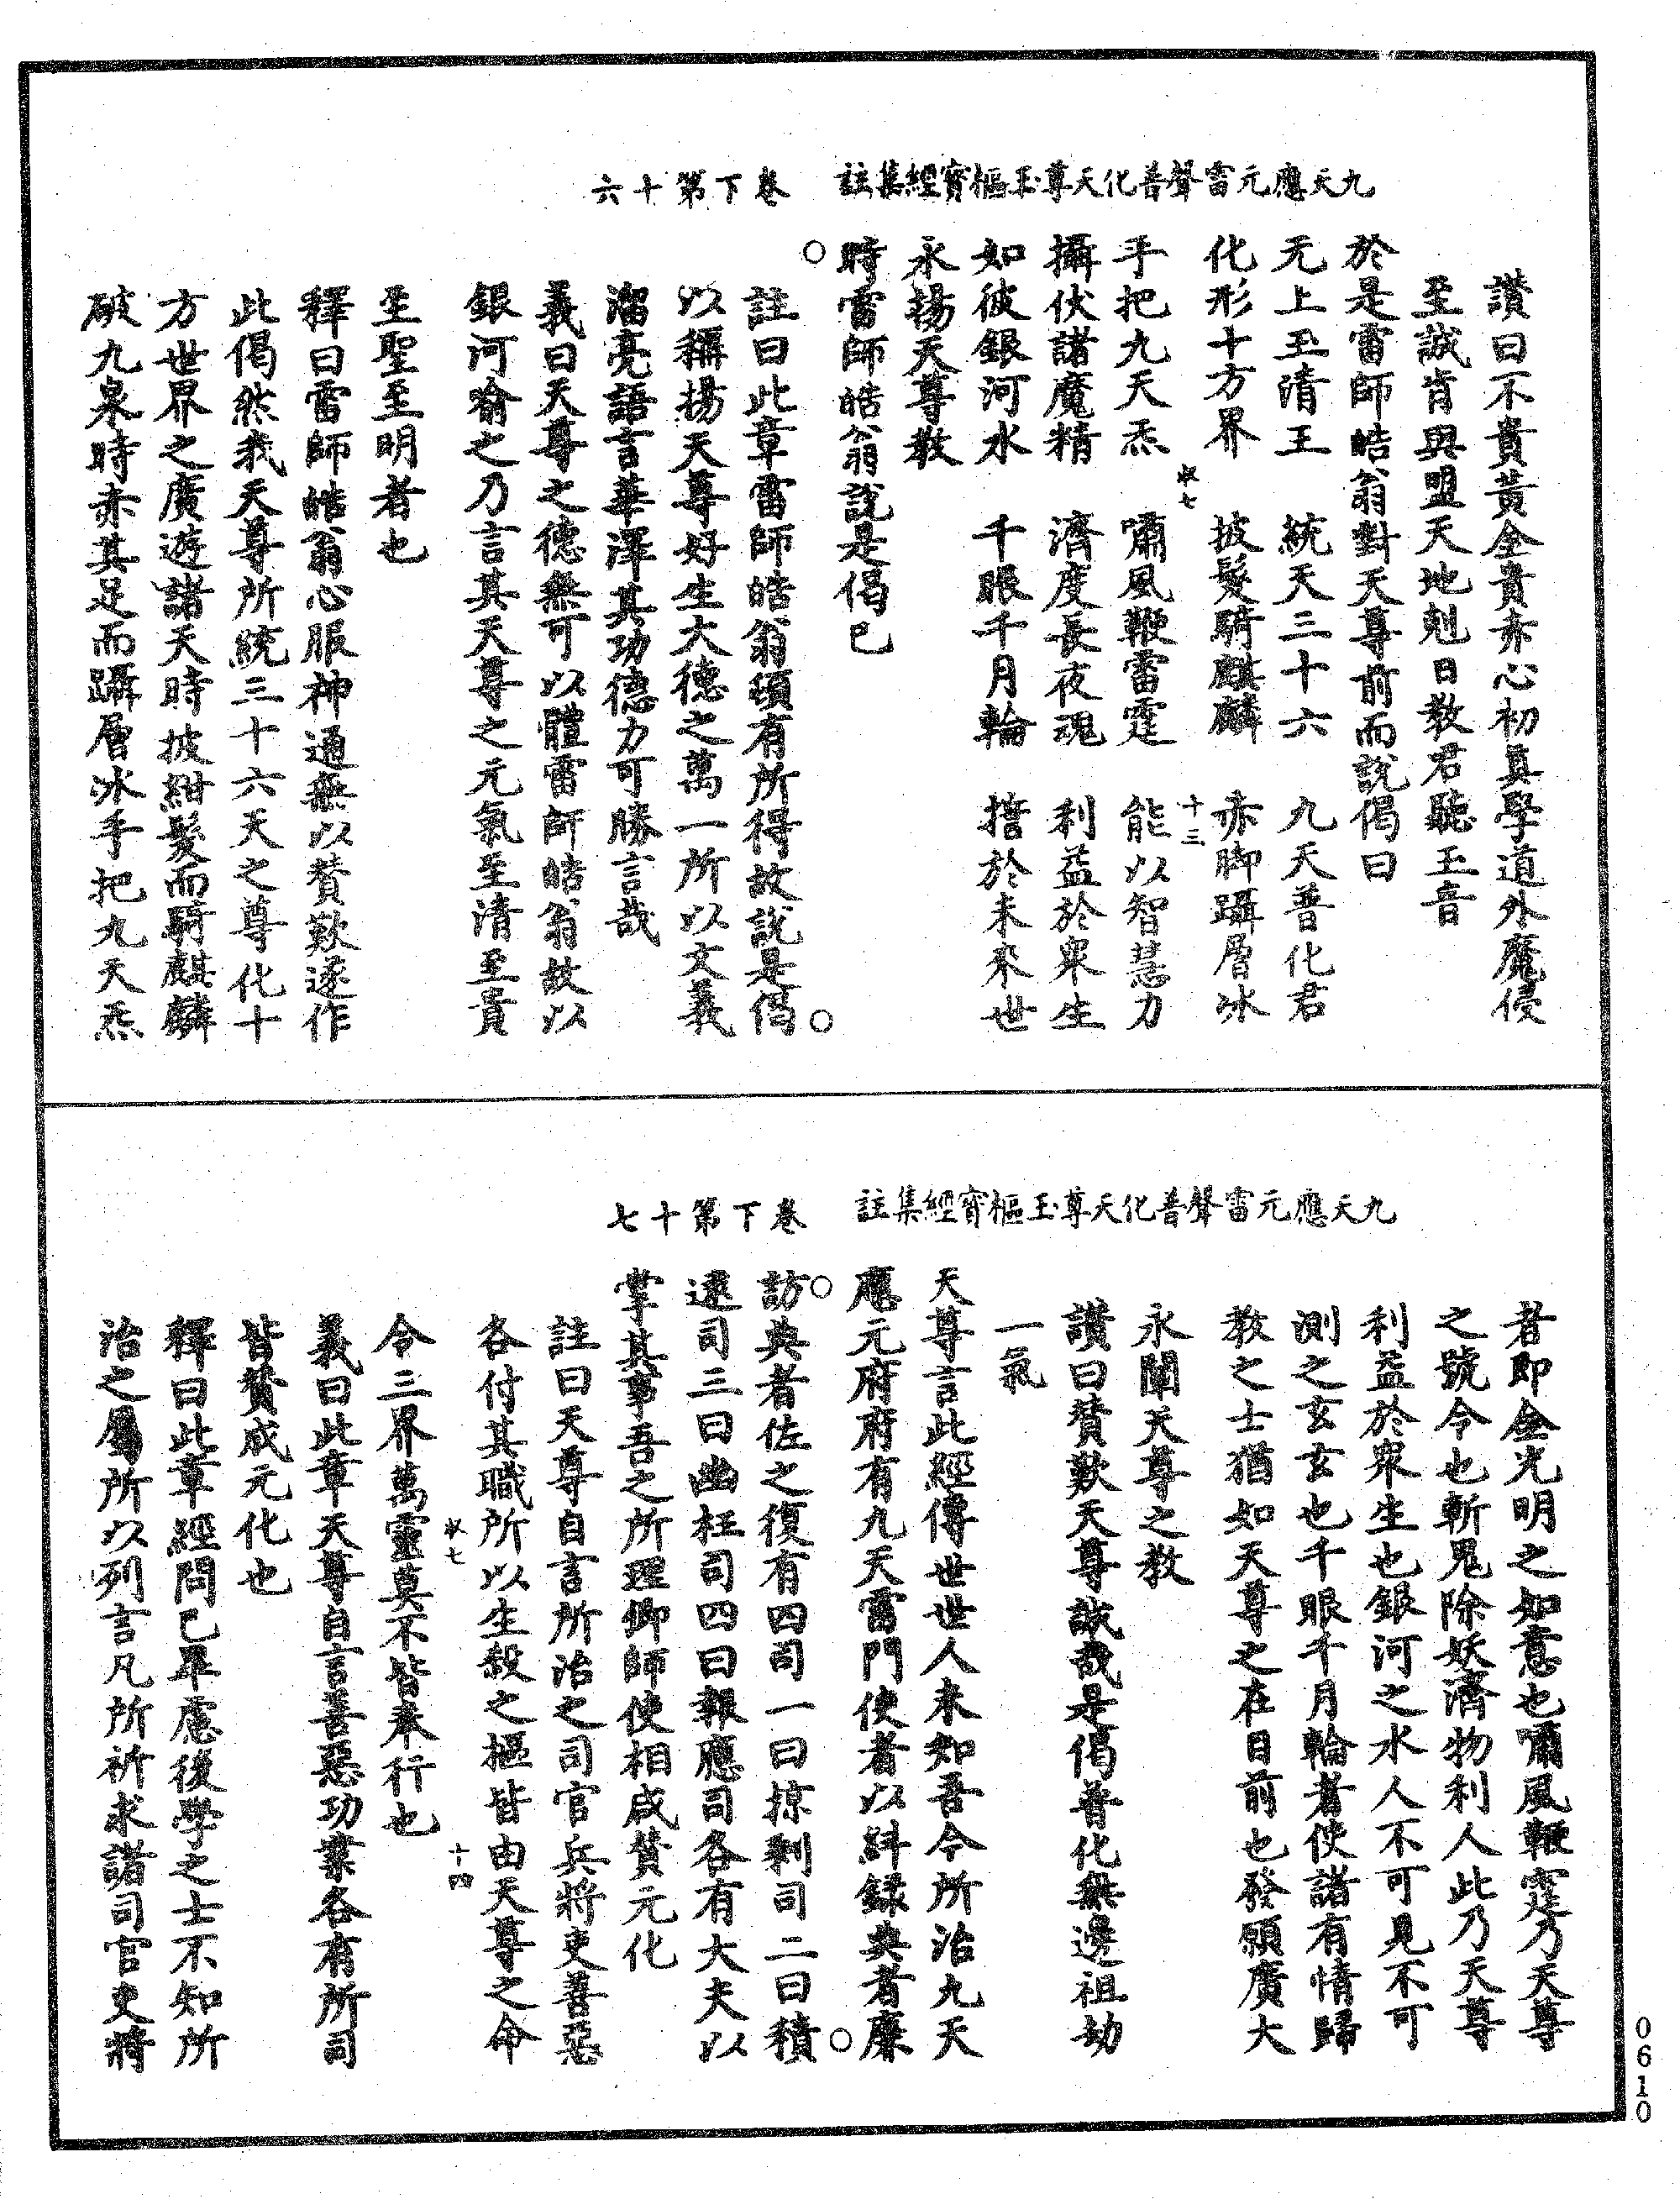 九天應元雷聲普化天尊玉樞寶經集註　卷下第十六
讚曰不貴黃金貴赤心初真學道外魔侵
至誠肯與盟天地剋日教君聽玉音
於是雷師皓翁對天尊前而說偈曰
无上玉清王　統天三十六　九天普化君
化形十方界　披髮騎麒麟　赤脚躡層冰
七　十三
手把九天炁　嘯風鞭雷霆　能以智慧力
攝伏諸魔精　濟度長夜魂　利益於衆生
如彼銀河水　千眼千月輪　誓於未來世
永揚天尊教
時雷師皓翁說是偈已
○
註曰此章雷師皓翁頌有所得故說是偈○
以稱揚天尊好生大德之萬一所以文義
溜亮語言華澤其功德力可勝言哉
義曰天尊之德無可以體雷師皓翁故以
銀河喻之乃言其天尊之元氣至清至貴
至聖至明者也
釋曰雷師皓翁心服神通無以贊歎遂作
此偈然我天尊所統三十六天之尊化十
方世界之廣遊諸天時披紺髮而騎麒麟
破九泉時赤其足而躡層冰手把九天炁
九天應元雷聲普化天尊玉樞寶經集註　卷下第十七
者即金光明之如意也嘯風鞭霆乃天尊
之號令也斬鬼除妖濟物利人此乃天尊
利益於衆生也銀河之水人不可見不可
測之玄玄也千眼千月輪者使諸有情歸
教之士猶如天尊之在目前也發願廣大
永闡天尊之教
讚曰贊歎天尊誠哉是偈普化無邊祖劫
一氣
天尊言此經傳世世人未知吾今所治九天
應元府府有九天雷門使者以紏録典者廉
○
訪典者佐之復有四司一曰掠剩司二曰積○
逮司三曰幽枉司四曰報應司各有大夫以
掌其事吾之所理卿師使相咸贊元化
註曰天尊自言所治之司官兵將吏善惡
各付其職所以生殺之樞皆由天尊之命
七　十四
令三界萬靈莫不皆奉行也
義曰此章天尊自言善惡功業各有所司
皆贊成元化也
釋曰此章經問已畢慮後學之士不知所
治之屬所以列言凡所祈求諸司官吏將
0610